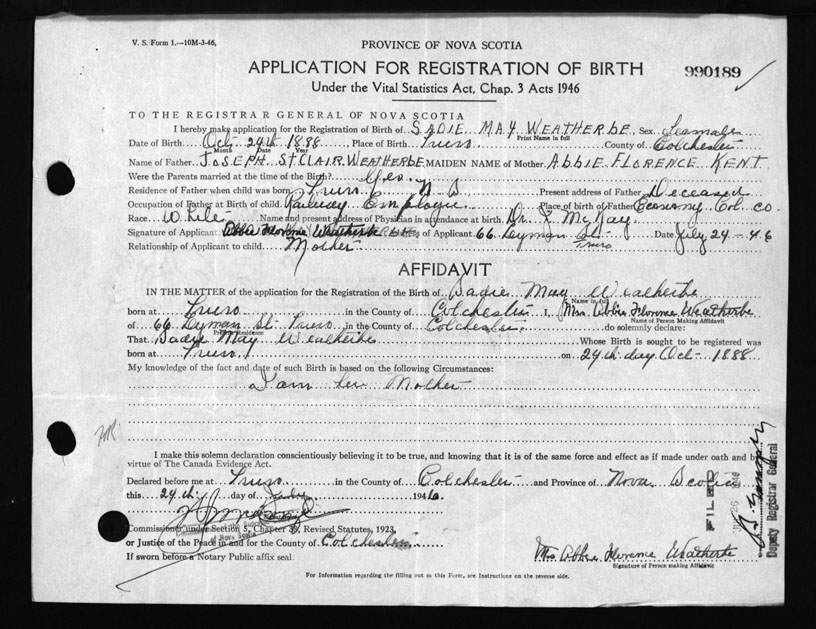 V. S. Form 1.—10M-3-46.
PROVINCE OF NOVA SCOTIA
APPLICATION FOR REGISTRATION OF BIRTH
990189
Under the Vital Statistics Act, Chap. 3 Acts 1946
TO THE REGISTRAR GENERAL OF NOVA SCOTIA
I hereby make application for the Registration of Birth of SADIE MAY WEATHERBE, Sex Female
Print Name in full
Date of Birth Oct 24th 1888, Place of Birth Truro County of Colchester
Month Date Year
Name of Father JOSEPH ST CLAIR WEATHERBE MAIDEN NAME of Mother ABBIE FLORENCE KENT
Were the Parents married at the time of Birth? Yes.
Residence of Father when child was born Truro N S Present address of Father Deceased
Occupation of Father at Birth of child Railway Employee Place of birth of Father Economy Col. Co
Race White Name and present address of Physician in attendance at birth Dr. McKay
Signature of Applicant Abbie Florence Weatherbe of Applicant 66 Lyman St. Truro Date July 24-46
Relationship of Applicant to child Mother
AFFIDAVIT
IN THE MATTER of the application for the Registration of the Birth of Sadie May Weatherbe
Name in full
born at Truro in the County of Colchester I, Mrs Abbie Florence Weatherbe
Name of Person Making Affidavit
of 66 Lyman St. Truro in the County of Colchester do solemnly declare:
Present Residence
That Sadie May Weatherbe Whose Birth is sought to be registered was
born at Truro on 24th day Oct- 1888
My knowledge of the fact and date of such Birth is based on the following Circumstances:
I am her Mother
I make this solemn declaration conscientiously believing it to be true, and knowing that it is of the same force and effect as if made under oath and by
virtue of The Canada Evidence Act.
Declared before me at Truro in the County of Colchester and Province of Nova Scotia
this 24th day of July 1946
Commissioner under Section 5, Chapter 39, Revised Statutes, 1923,
of Nova Scotia
or Justice of the Peace in and for the County of Colchester
If sworn before a Notary Public affix seal.
Mrs Abbie Florence Weatherbe
Signature of Person making Affidavit
For Information regarding the filling out of this Form, see Instructions on the reverse side.
FILED
Deputy Registrar General